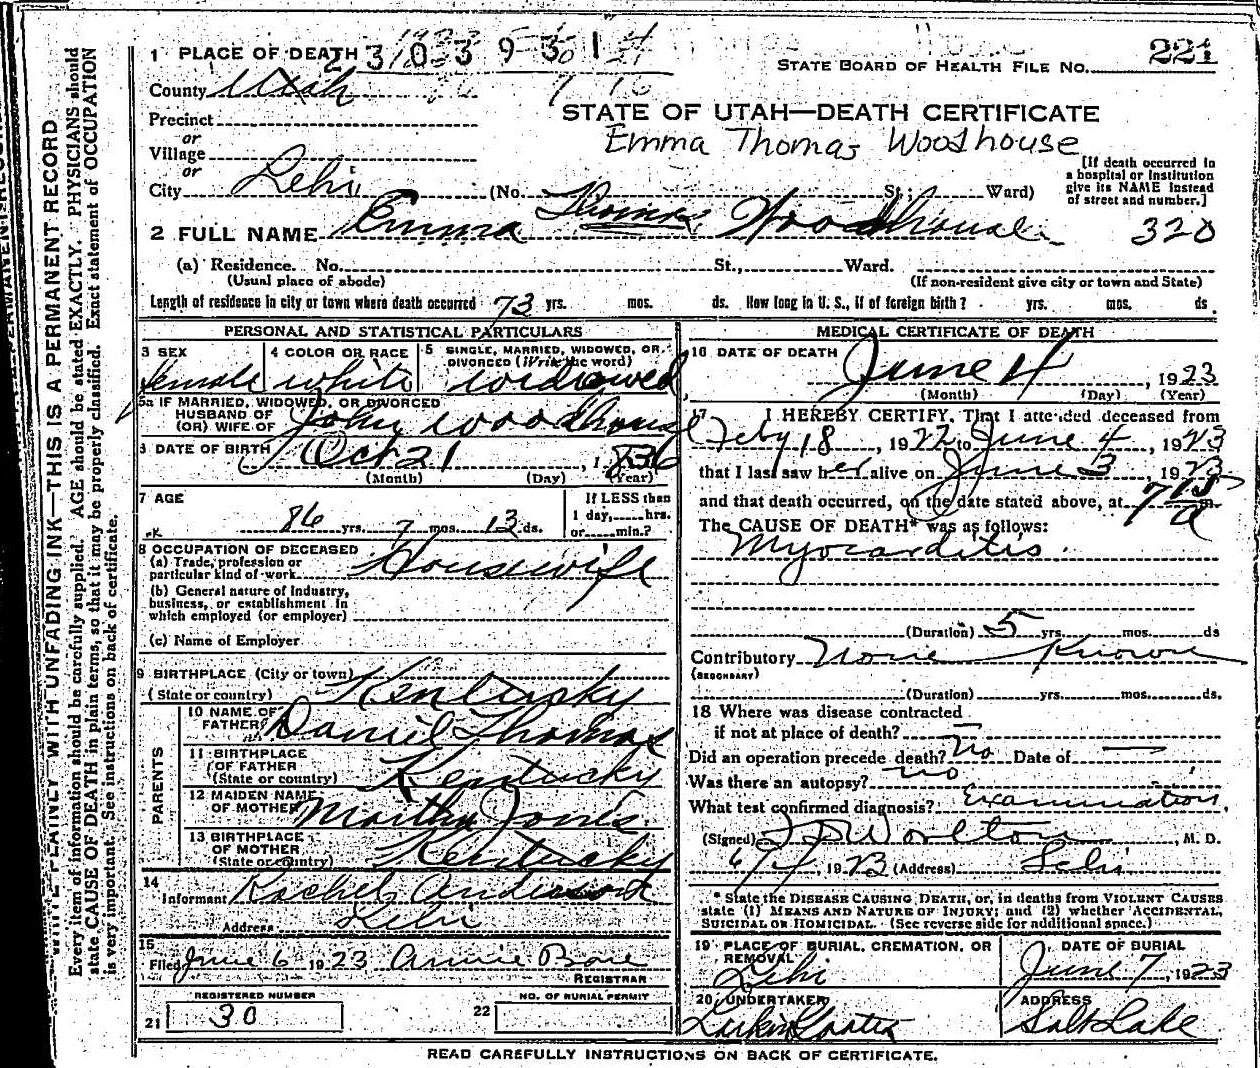 1 PLACE OF DEATH
STATE BOARD OF HEALTH FILE NO. 221
County Utah
STATE OF UTAH—DEATH CERTIFICATE
Precinct
Emma Thomas Woodhouse
or
Village
or
City Lehi (No. St.; Ward)
[If death occurred in
a hospital or institution
give its NAME instead
of street and number.]
2 FULL NAME Emma Thomas Woodhouse
320
(a) Residence. No. St., Ward.
(Usual place of abode) (If non-resident give city or town and State)
Length of residence in city or town where death occurred 73 yrs. mos. ds. How long in U. S., if of foreign birth? yrs. mos. ds.
PERSONAL AND STATISTICAL PARTICULARS
3 SEX female
4 COLOR OR RACE white
5 SINGLE, MARRIED, WIDOWED, OR
DIVORCED (Write the word)
widowed
5a IF MARRIED, WIDOWED, OR DIVORCED
HUSBAND OF
(OR) WIFE OF John Woodhouse
6 DATE OF BIRTH Oct 21, 1836
(Month) (Day) (Year)
7 AGE
86 yrs. 7 mos. 13 ds.
If LESS then
1 day, hrs.
or min.?
8 OCCUPATION OF DECEASED
(a) Trade, profession or
particular kind of work Housewife
(b) General nature of industry,
business, or establishment in
which employed (or employer)
(c) Name of Employer
9 BIRTHPLACE (City or town)
(State or country) Kentucky
PARENTS
10 NAME OF
FATHER Daniel Thomas
11 BIRTHPLACE
OF FATHER
(State or country) Kentucky
12 MAIDEN NAME
OF MOTHER Martha Jones
13 BIRTHPLACE
OF MOTHER
(State or country) Kentucky
14
Informant Rachel Anderson
Address Lehi
15
Filed June 6 1923 Annie Bone
REGISTRAR
REGISTERED NUMBER
21 30
NO. OF BURIAL PERMIT
22
MEDICAL CERTIFICATE OF DEATH
16 DATE OF DEATH June 4, 1923
(Month) (Day) (Year)
17 I HEREBY CERTIFY, That I attended deceased from
Feby 18, 1922 to June 4, 1923
that I last saw her alive on June 3 1923
and that death occurred, on the date stated above, at 7 15 a m.
The CAUSE OF DEATH* was as follows:
Myocarditis
(Duration) 5 yrs. mos. ds
Contributory None Known
(SECONDARY)
(Duration) yrs. mos. ds.
18 Where was disease contracted
if not at place of death?
Did an operation precede death? No Date of
Was there an autopsy? no
What test confirmed diagnosis? Examination
(Signed) Worlton, M. D.
6/4, 1923 (Address) Lehi
* State the DISEASE CAUSING DEATH, or, in deaths from VIOLENT CAUSES
state (1) MEANS AND NATURE OF INJURY; and (2) whether ACCIDENTAL,
SUICIDAL OR HOMICIDAL. (See reverse side for additional space.)
19 PLACE OF BURIAL, CREMATION, OR
REMOVAL
Lehi
DATE OF BURIAL
June 7, 1923
20 UNDERTAKER
Larkin
ADDRESS
Salt Lake
READ CAREFULLY INSTRUCTIONS ON BACK OF CERTIFICATE.
WITH UNFADING INK—THIS IS A PERMANENT RECORD
Every item of information should be carefully supplied. AGE should be stated EXACTLY. PHYSICIANS should
state CAUSE OF DEATH in plain terms, so that it may be properly classified. Exact statement of OCCUPATION
is very important. See instructions on back of certificate.